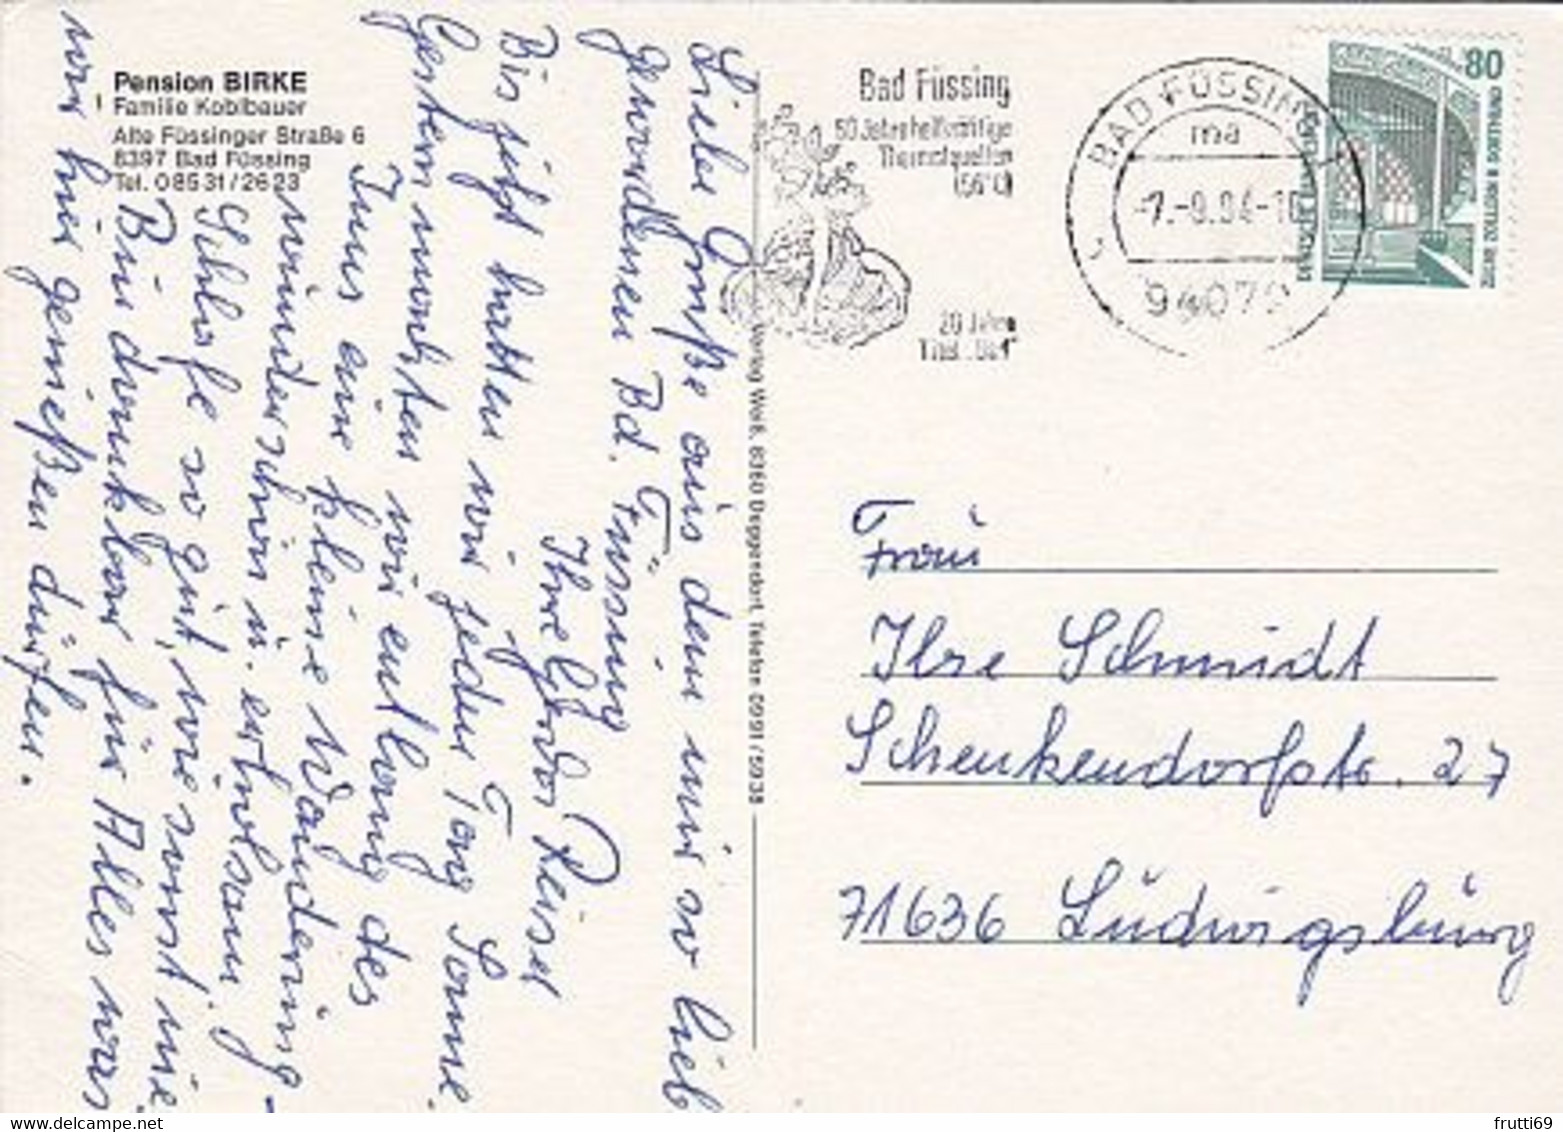 Pension BIRKE
Familie Koblbauer
Alte Füssinger Straße 6
8397 Bad Füssing
Tel. 08531/2623
Bad Füssing
50 Jahre heilkräftige
Thermalquellen
(56°C)
20 Jahre
Titel „Bad“
BAD FÜSSING 1
ma
-7.-9.94-10
94072
80
ZECHE ZOLLERN II DORTMUND
Verlag Weiß, 8360 Deggendorf, Telefon 0991/5938
Liebe Grüße aus dem mir so lieb
gewordenen Bd. Füssing
Ihre Reiser
Bis jetzt hatten wir jeden Tag Sonne
Gestern machten wir entlang des
Inns eine kleine Wanderung -
wunderschön u. erholsam. I
Schlafe so gut, wie sonst nie
Bin dankbar für Alles was
wir hier genießen dürfen.
Frau
Ilse Schmidt
Schenkendorfstr. 27
71636 Ludwigsburg
frutti69